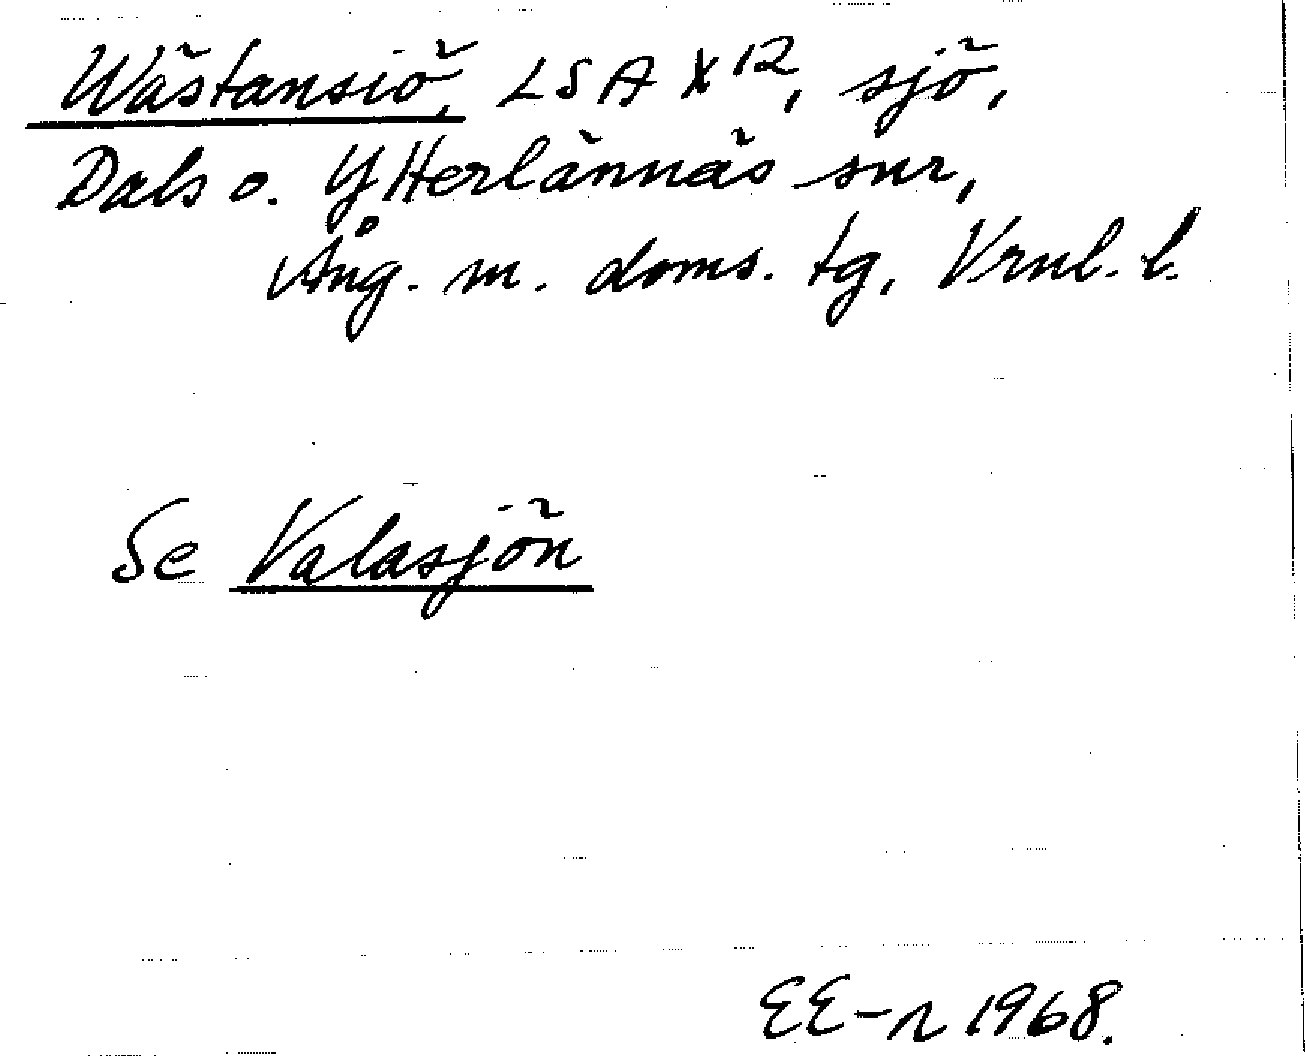 Wästansiö, LSA X 12, sjö,
Dals o. Ytterlännäs snr,
Ång. m. doms. tg, Vrnl. l.
Se Valasjön
EE-n 1968.